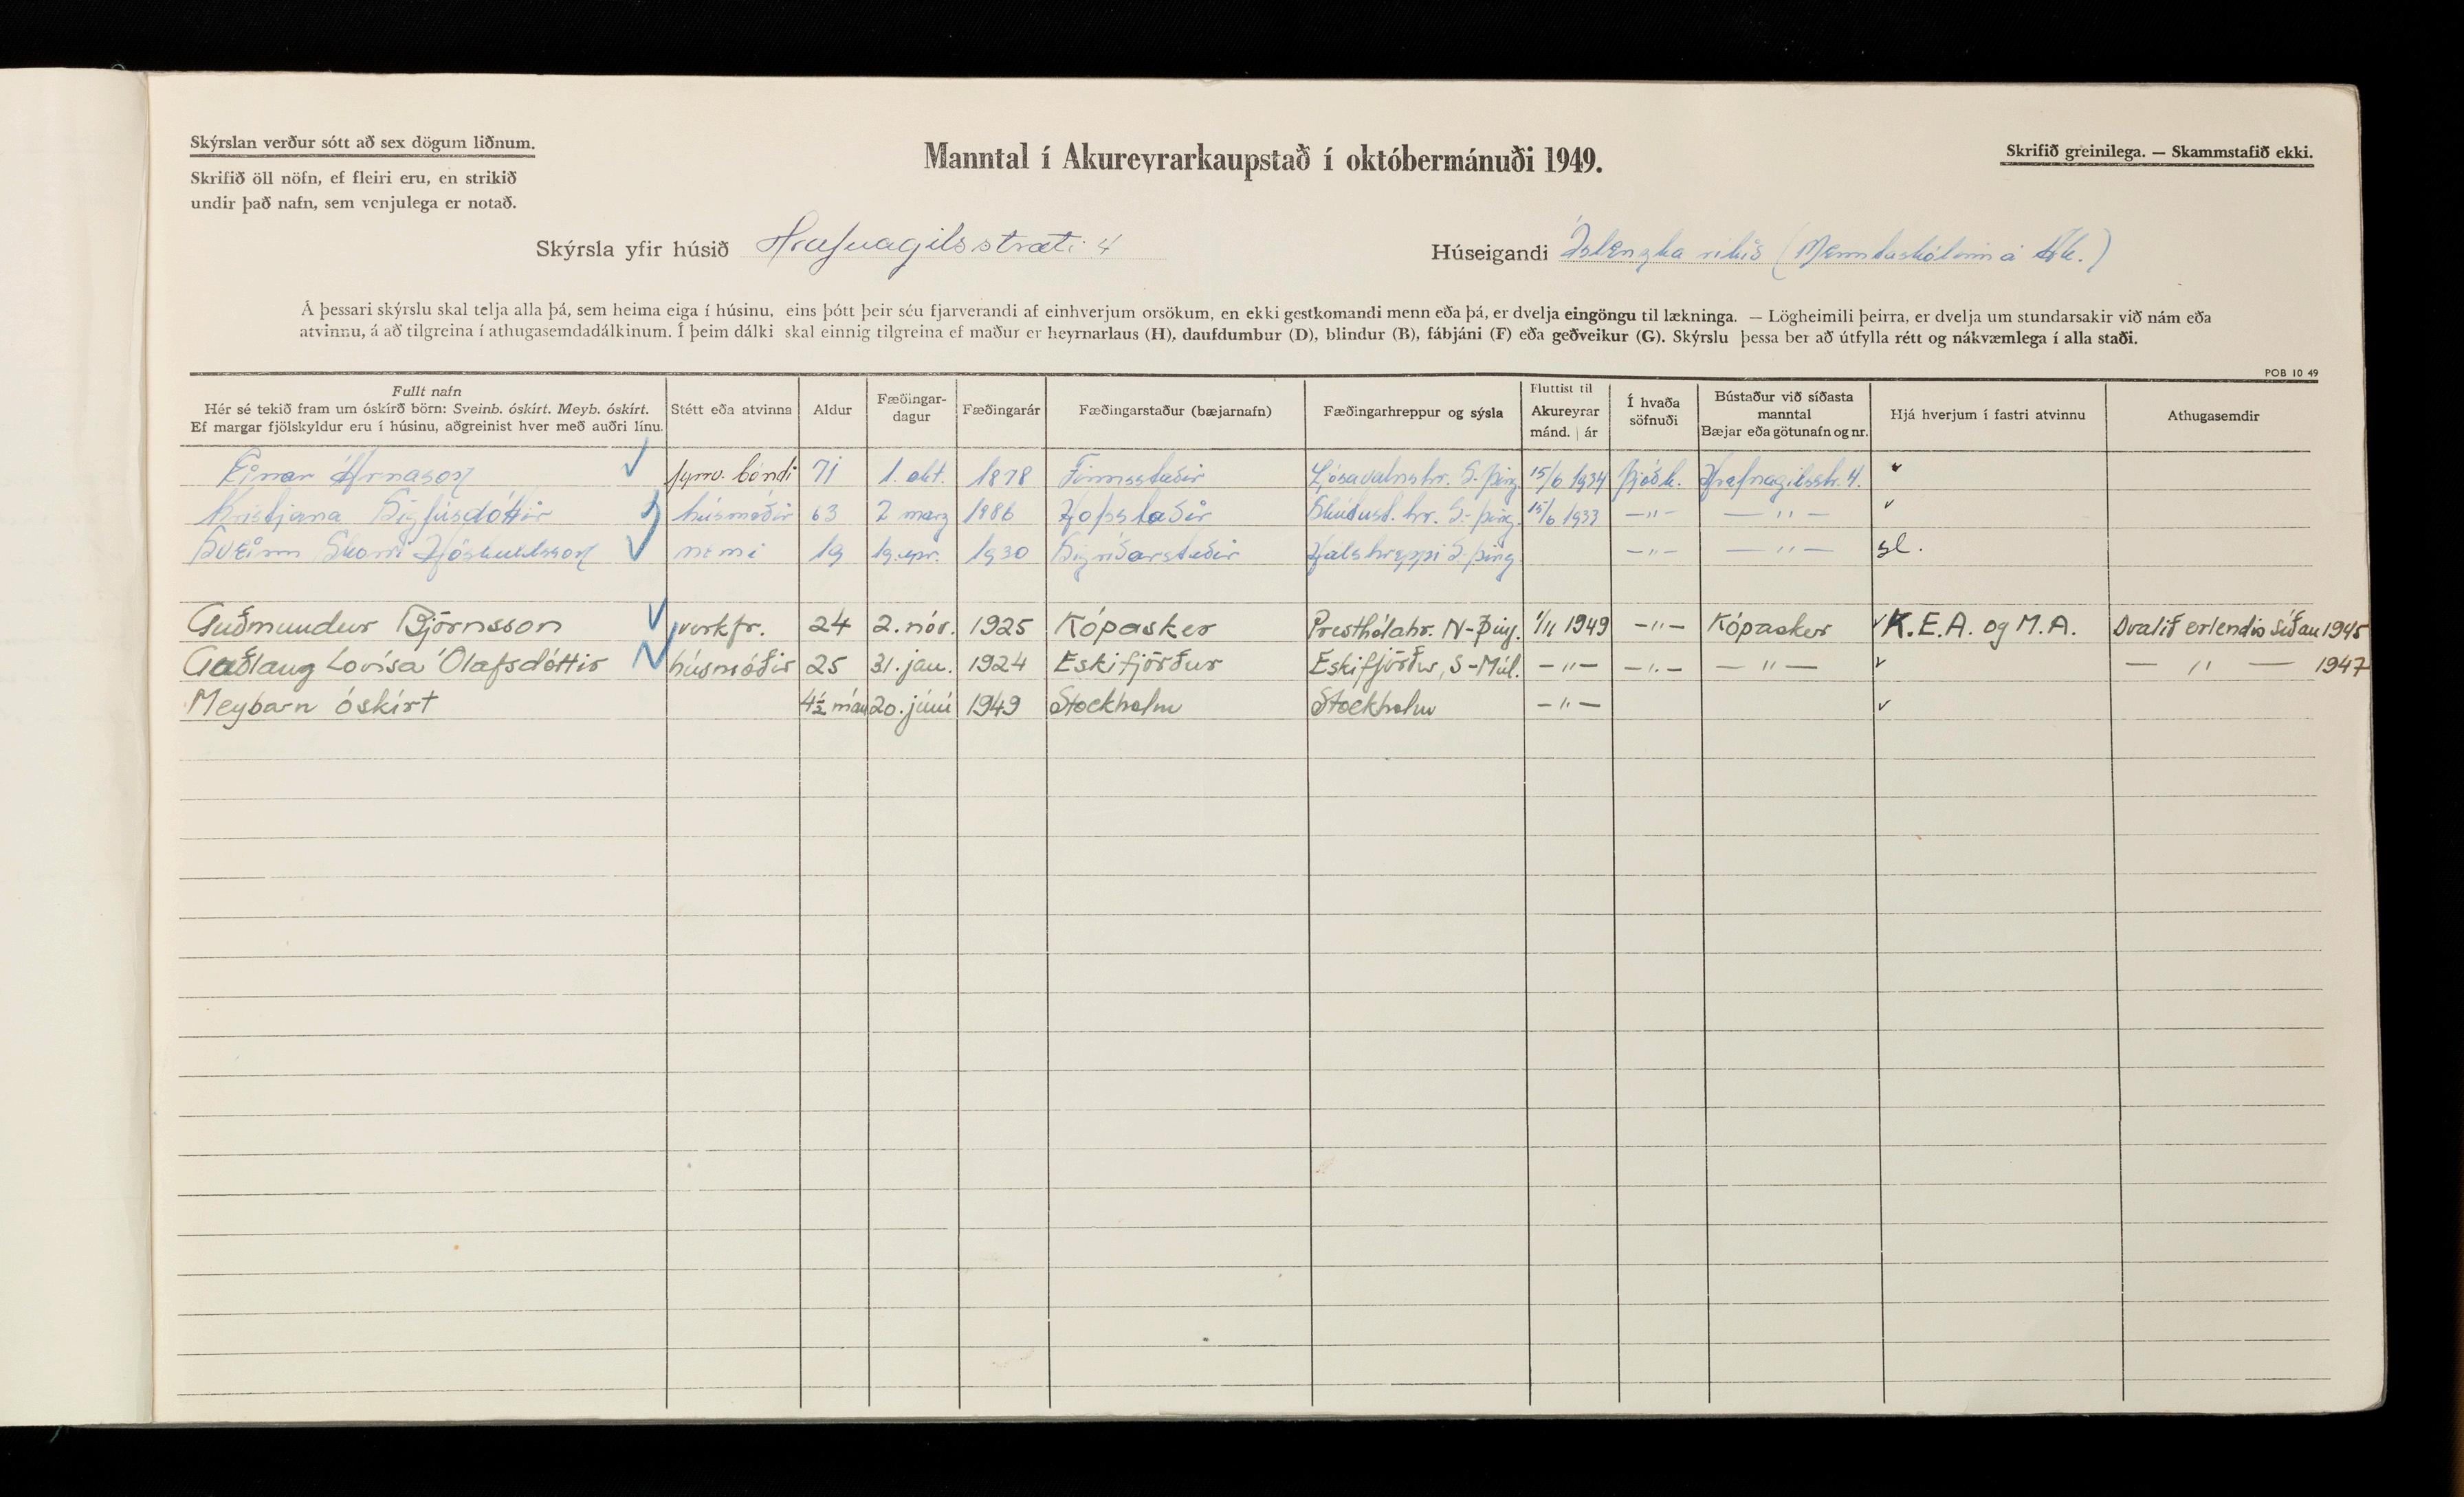 Skýrslan verður sótt að sex dögum liðnum.
Skrifið öll nöfn, ef fleiri eru, en strikið
undir það nafn, sem venjulega er notað.
Manntal í Akureyrarkaupstað í októbermánuði 1949.
Skrifið greinilega. — Skammstafið ekki.
Skýrsla yfir húsið Hrafnagilsstræti 4
Húseigandi Íslenzka ríkið (Menntaskólinn á Ak.)
Á þessari skýrslu skal telja alla þá, sem heima eiga í húsinu, eins þótt þeir séu fjarverandi af einhverjum orsökum, en ekki gestkomandi menn eða þá, er dvelja eingöngu til lækninga. — Lögheimili þeirra, er dvelja um stundarsakir við nám eða
atvinnu, á að tilgreina í athugasemdadálkinum. Í þeim dálki skal einnig tilgreina ef maður er heyrnarlaus (H), daufdumbur (D), blindur (B), fábjáni (F) eða geðveikur (G). Skýrslu þessa ber að útfylla rétt og nákvæmlega í alla staði.
POB 10 49
Fullt nafn
Hér sé tekið fram um óskírð börn: Sveinb. óskírt. Meyb. óskírt.
Ef margar fjölskyldur eru í húsinu, aðgreinist hver með auðri línu.
Stétt eða atvinna
Aldur
Fæðingar-
dagur
Fæðingarár
Fæðingarstaður (bæjarnafn)
Fæðingarhreppur og sýsla
Fluttist til
Akureyrar
mánd. | ár
Í hvaða
söfnuði
Bústaður við síðasta
manntal
Bæjar eða götunafn og nr.
Hjá hverjum í fastri atvinnu
Athugasemdir
Einar Árnason fyrrv. bóndi 71 1. okt. 1878 Finnsstaðir Ljósavatnshr. S-þing. 15/6 1934 þjóðk. Hrafnagilsstr. 4.
Kristjana Sigfúsdóttir húsmóðir 63 2 marz 1886 Hofsstaðir Skútust. hr. S-þing. 15/6 1933 —"— —"—
Sveinn Skorri Höskuldsson nemi 19 19. apr. 1930 Sigríðarstaðir Hálshreppi S-þing —"— —"— gl.
Guðmundur Björnsson verkfr. 24 2. nóv. 1925 Kópasker Presthólahr. N-Þing. 1/11 1949 —"— Kópasker K.E.A. og M.A. Dvalið erlendis síðan 1945
Guðlaug Lovísa Ólafsdóttir húsmóðir 25 31. jan. 1924 Eskifjörður Eskifjörður, S-Múl. —"— —"— —"— —"— 1947
Meybarn óskírt 4½ mán 20. júní 1949 Stockholm Stockholm —"—